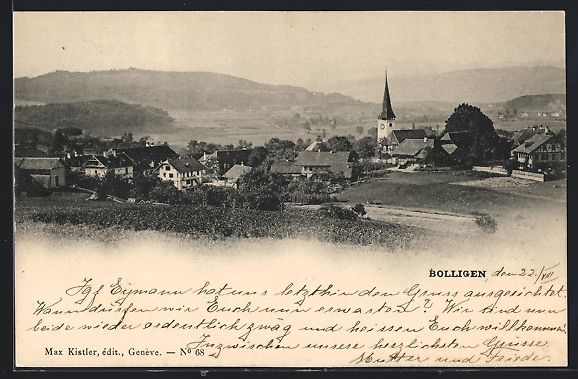 BOLLIGEN den 22./VIII
Igf Eymann hat uns letzthin den Gruss ausgerichtet.
Wann dürfen wir Euch nun erwarten? Wir sind nun
beide wieder ordentlich zwäg und heissen Euch willkommen.
Inzwischen unsere herzlichsten Grüsse
Mutter und Frieder
Max Kistler, édit., Genève. — No 68